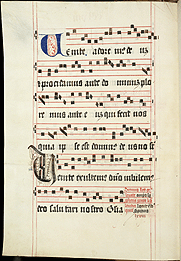 Uenite, adore mus de uz
et procidamus ante do minuz plo
re mus ante e uz qui fecit nos
quia ip se est dominus de us no st
Uenite exultemus dno iubilem
deo salu tari nostro Glia